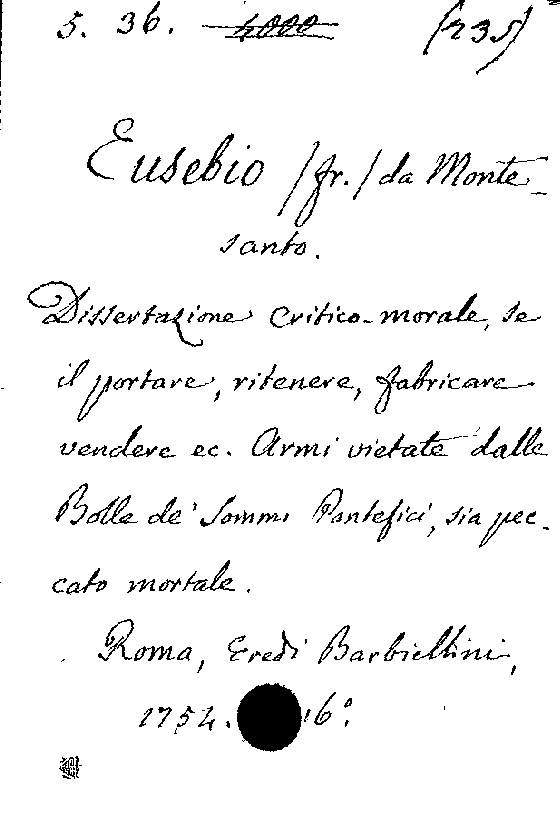 5. 36. 4000 (235)
Eusebio /fr./ da Monte-
santo.
Dissertazione critico-morale, se
il portare, ritenere, fabricare
vendere ec. Armi vietate dalle
Bolle de' Sommi Pontefici, sia pec-
cato mortale.
Roma, Eredi Barbiellini,
1754. 16°